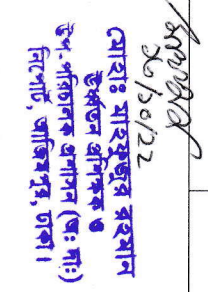 ২০/১০/২২
মোহাঃ মাহফুজুর রহমান
উর্ধ্বতন প্রশিক্ষক ও
উপ-পরিচালক প্রশাসন (অঃ দাঃ)
নিপোর্ট, আজিমপুর, ঢাকা।